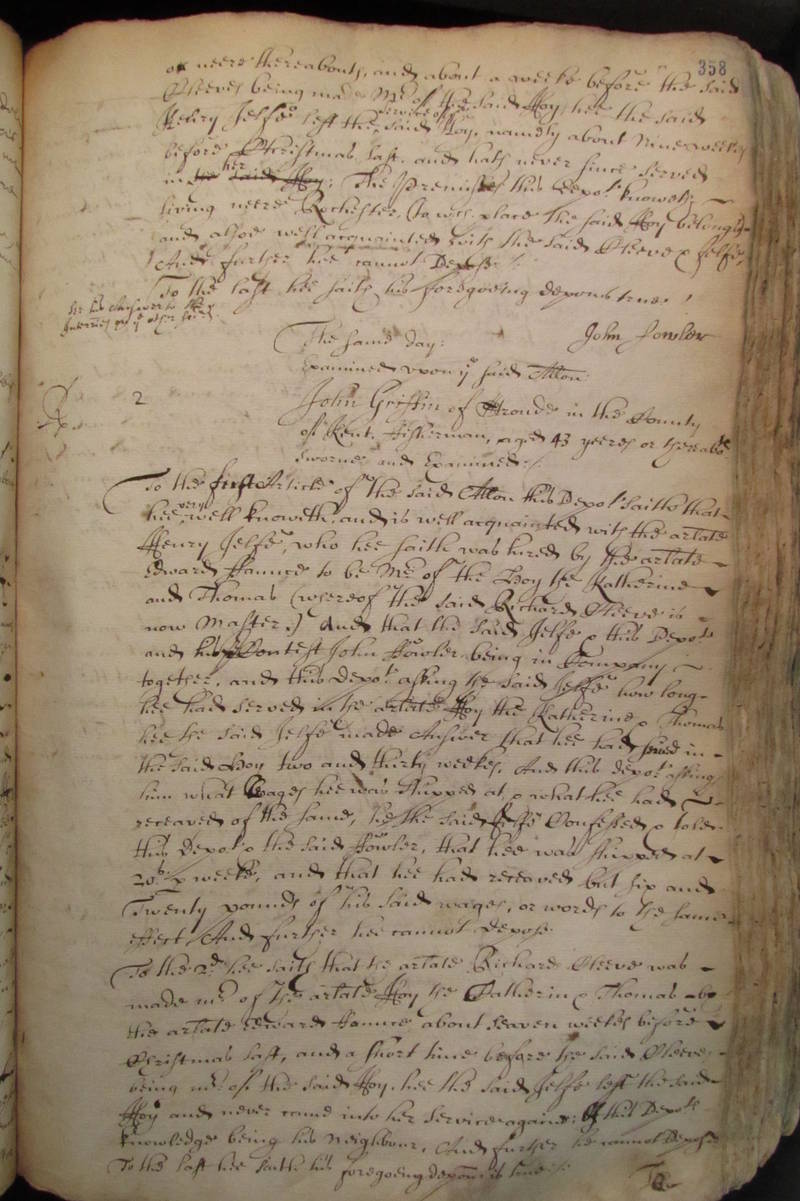 358
or neere thereabouts, and about a weeke before the said
Cleeve being made Mr. of the said Hoy hee the said
Henry Jelfe left the service of the said Hoy, namely about nine weekes
before Christmas last. and hath never since served
in the said Hoy her: The premisses this depot. knoweth
living neere Rochester, (to wch. place the said Hoy belongeth
and alsoe well acquainted with the said Cleeve & Jelfe,
And further hee cannot Depose /:
To the last hee saith his foregoeing deposn is true /
John Fowler
The same day:
Examined upon ye said Allon
2
John Griffin of Stroude in the County
of Kent. Fisherman, aged 43 yeeres or thereabts
sworne and Examined /:
To the first Article of the said Allon this Depot. saith that
hee very well knoweth, and is well acquainted with the arlate
Henry Jelfe, who hee saith was hired by the arlate
Edward Faunce to be Mr. of the Hoy the Katherine
and Thomas (whereof the said Richard Cleeve is
now Master.) And that the said Jelfe & this Depot.
and his Contest John Fowler being in Company
together, and this Depot. asking the said Jelfe how long
hee had served in the arlate Hoy the Katherine & Thomas
hee the said Jelfe made Answer that hee had served in
the said Hoy two and thirty weekes, And this depot. asking
him what Wages hee was shipped at & what hee had
receaved of the same, hee the said Jelfe Confessed & tolde
this Depot. & the said Fowler, that hee was shipped at
20s. p weeke, and that hee had receaved but six and
Twenty pounds of his said wages, or words to the same
effect And further hee cannot depose.
To the 2d. hee saith that the arlate Richard Cleeve was
made mr. of the arlate Hoy the Katherin & Thomas by
the arlate Edward Faunce about seaven weekes before
Christmas last, and a short time before the said Cleeve
being mr. of the said Hoy, hee the said Jelfe left the said
Hoy and never came into her service againe: of this Depots
knowledge being his Neighbour, And further hee cannot Depose
To the last hee saith his foregoeing deposn is true /:
To